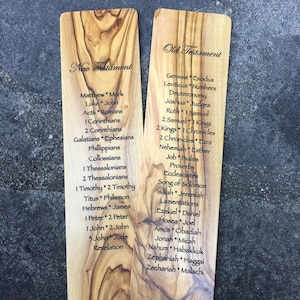 New Testament
Matthew * Mark
Luke * John
Acts * Romans
1 Corinthians
2 Corinthians
Galatians * Ephesians
Phillippians
Collossians
1 Thessalonians
2 Thessalonians
1 Timothy * 2 Timothy
Titus * Philemon
Hebrews * James
1 Peter * 2 Peter
1 John * 2 John
3 John * Jude
Revelation
Old Testament
Genesis * Exodus
Leviticus * Numbers
Deuteronomy
Joshua * Judges
Ruth * 1 Samuel
2 Samuel * 1 Kings
2 Kings * 1 Chronicles
2 Chronicles * Ezra
Nehemiah * Esther
Job * Psalms
Proverbs
Ecclesiastes
Song of Solomon
Isaiah * Jeremiah
Lamentations
Ezekiel * Daniel
Hosea * Joel
Amos * Obadiah
Jonah * Micah
Nahum * Habakkuk
Zephaniah * Haggai
Zechariah * Malachi